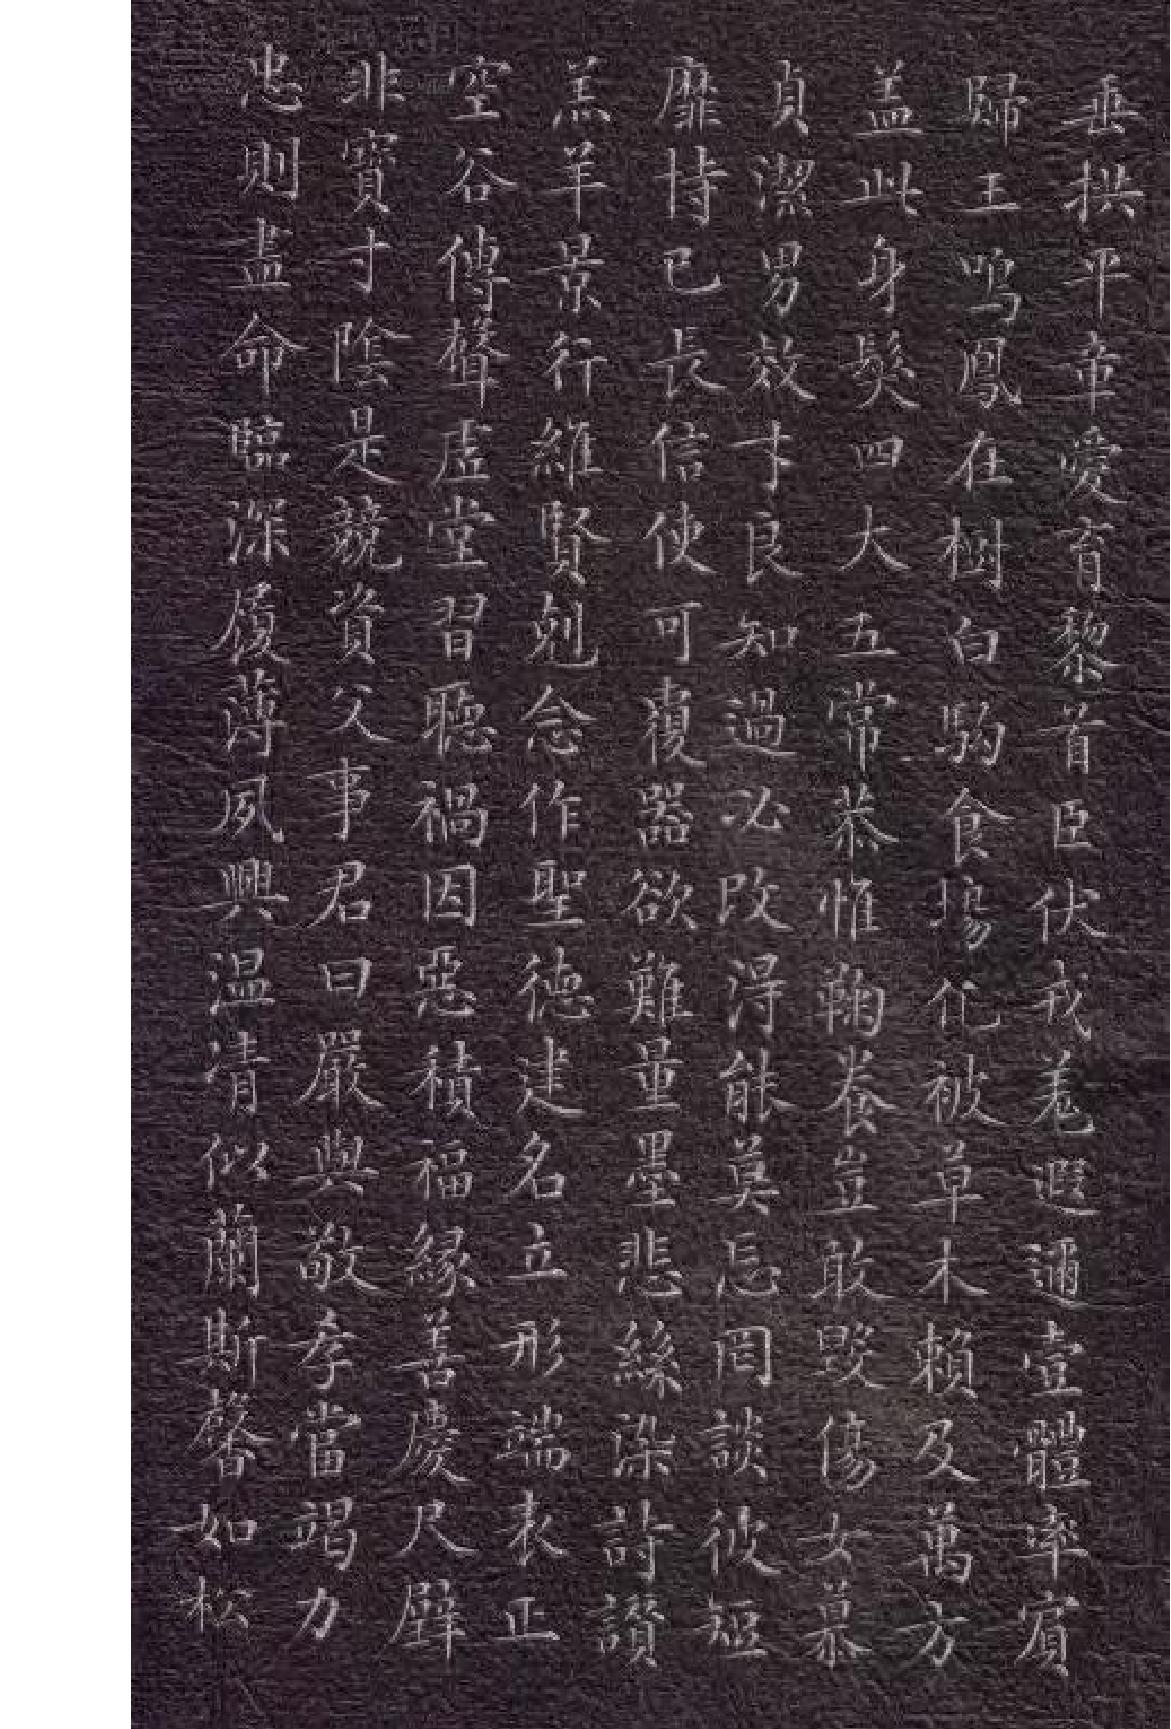 垂拱平章愛育黎首臣伏戎羌遐邇壹體率賓
歸王鳴鳳在樹白駒食場化被草木賴及萬方
盖此身髮四大五常恭惟鞠養豈敢毀傷女慕
貞潔男效才良知過必改得能莫忘罔談彼短
靡恃己長信使可覆器欲難量墨悲絲染詩讚
羔羊景行維賢剋念作聖德建名立形端表正
空谷傳聲虛堂習聽禍因惡積福緣善慶尺璧
非寶寸陰是競資父事君曰嚴與敬孝當竭力
忠則盡命臨深履薄夙興温凊似蘭斯馨如松